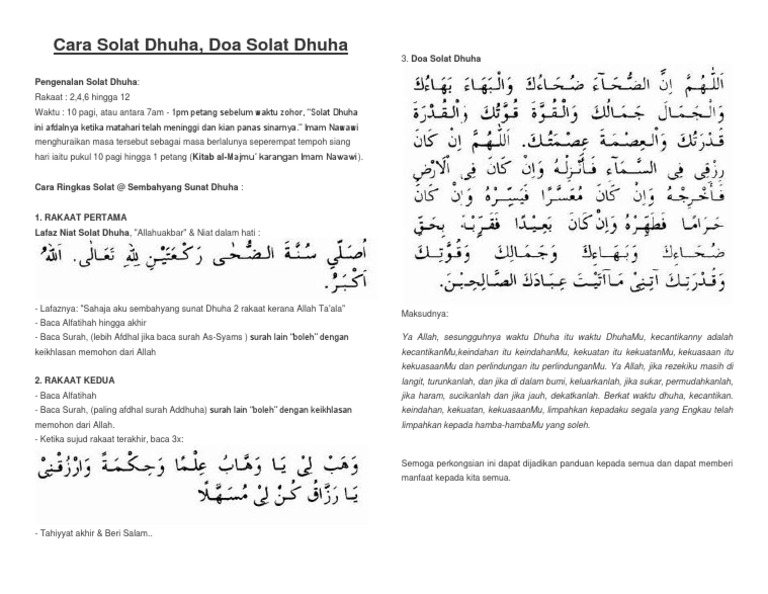 Cara Solat Dhuha, Doa Solat Dhuha
Pengenalan Solat Dhuha:
Rakaat : 2,4,6 hingga 12
Waktu : 10 pagi, atau antara 7am - 1pm petang sebelum waktu zohor, "Solat Dhuha
ini afdalnya ketika matahari telah meninggi dan kian panas sinarnya." Imam Nawawi
menghuraikan masa tersebut sebagai masa berlalunya seperempat tempoh siang
hari iaitu pukul 10 pagi hingga 1 petang (Kitab al-Majmu' karangan Imam Nawawi).
Cara Ringkas Solat @ Sembahyang Sunat Dhuha :
1. RAKAAT PERTAMA
Lafaz Niat Solat Dhuha, "Allahuakbar" & Niat dalam hati :
اُصَلِّي سُنَّةَ الضُّحٰى رَكْعَتَيْنِ لِلّٰهِ تَعَالٰى. اَللّٰهُ
اَكْبَرُ.
- Lafaznya: "Sahaja aku sembahyang sunat Dhuha 2 rakaat kerana Allah Ta'ala"
- Baca Alfatihah hingga akhir
- Baca Surah, (lebih Afdhal jika baca surah As-Syams ) surah lain "boleh" dengan
keikhlasan memohon dari Allah
2. RAKAAT KEDUA
- Baca Alfatihah
- Baca Surah, (paling afdhal surah Addhuha) surah lain "boleh" dengan keikhlasan
memohon dari Allah.
- Ketika sujud rakaat terakhir, baca 3x:
وَهَبْ لِيْ يَا وَهَّابُ عِلْمًا وَحِكْمَةً وَارْزُقْنِيْ
يَا رَزَّاقُ كُنْ لِيْ مُسَهِّلًا
- Tahiyyat akhir & Beri Salam..
3. Doa Solat Dhuha
اَللّٰهُمَّ اِنَّ الضُّحَآءَ ضُحَاءُكَ وَالْبَهَاءَ بَهَاءُكَ
وَالْجَمَالَ جَمَالُكَ وَالْقُوَّةَ قُوَّتُكَ وَالْقُدْرَةَ
قُدْرَتُكَ وَالْعِصْمَةَ عِصْمَتُكَ. اَللّٰهُمَّ اِنْ كَانَ
رِزْقِى فِى السَّمَآءِ فَأَنْزِلْهُ وَاِنْ كَانَ فِى الْاَرْضِ
فَأَخْرِجْهُ وَاِنْ كَانَ مُعَسَّرًا فَيَسِّرْهُ وَاِنْ كَانَ
حَرَامًا فَطَهِّرْهُ وَاِنْ كَانَ بَعِيْدًا فَقَرِّبْهُ بِحَقِّ
ضُحَاءِكَ وَبَهَاءِكَ وَجَمَالِكَ وَقُوَّتِكَ
وَقُدْرَتِكَ آتِنِيْ مَاآتَيْتَ عِبَادَكَ الصَّالِحِيْنَ.
Maksudnya:
Ya Allah, sesungguhnya waktu Dhuha itu waktu DhuhaMu, kecantikanny adalah
kecantikanMu,keindahan itu keindahanMu, kekuatan itu kekuatanMu, kekuasaan itu
kekuasaanMu dan perlindungan itu perlindunganMu. Ya Allah, jika rezekiku masih di
langit, turunkanlah, dan jika di dalam bumi, keluarkanlah, jika sukar, permudahkanlah,
jika haram, sucikanlah dan jika jauh, dekatkanlah. Berkat waktu dhuha, kecantikan.
keindahan, kekuatan, kekuasaanMu, limpahkan kepadaku segala yang Engkau telah
limpahkan kepada hamba-hambaMu yang soleh.
Semoga perkongsian ini dapat dijadikan panduan kepada semua dan dapat memberi
manfaat kepada kita semua.